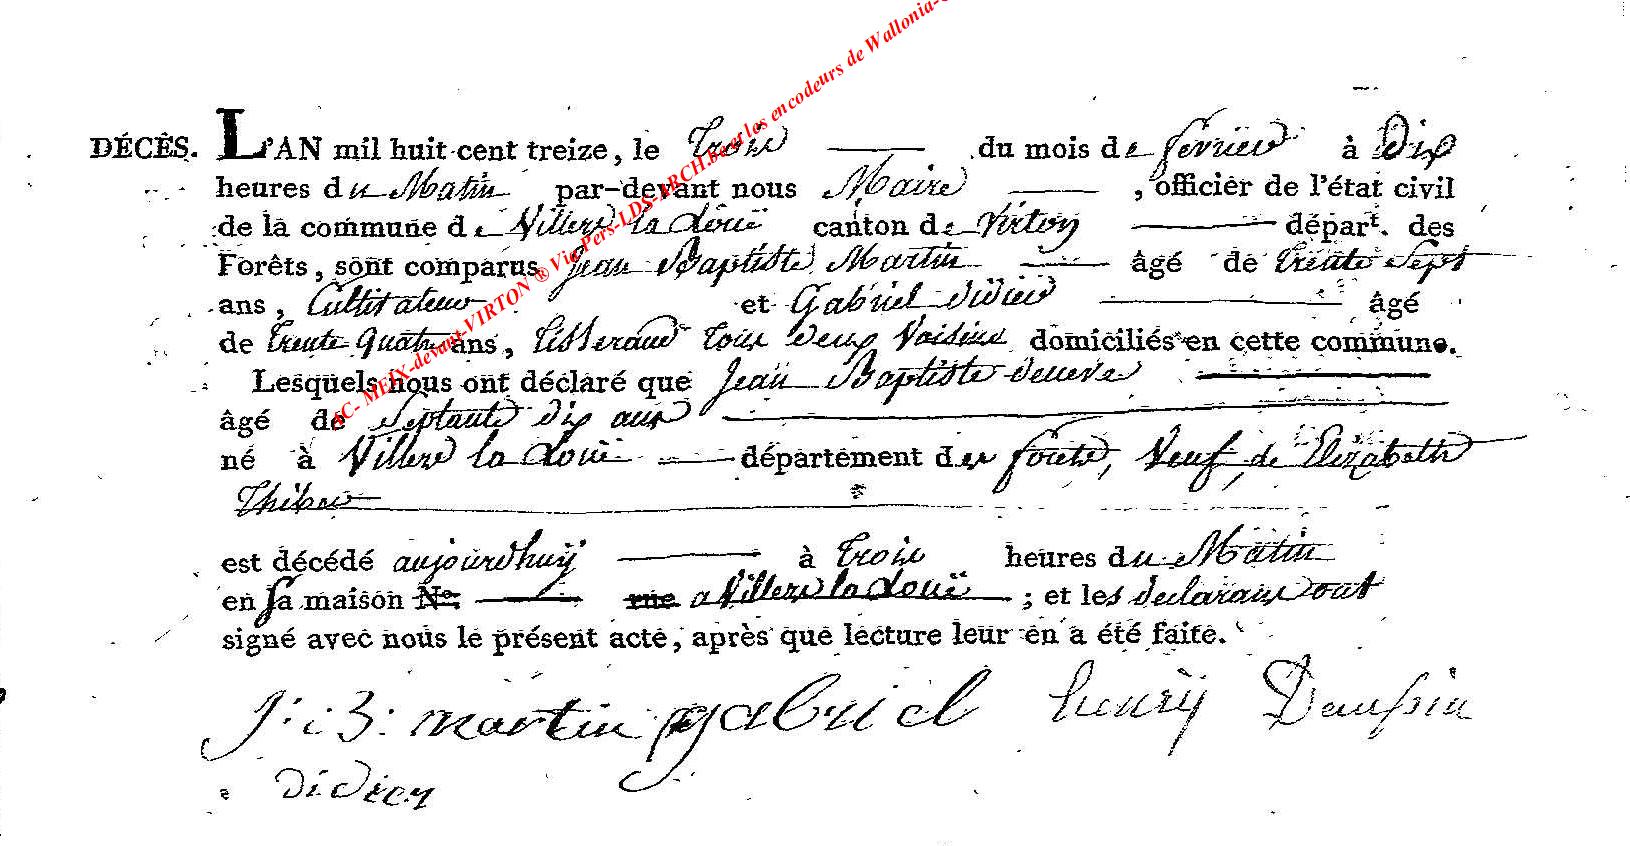 DÉCÈS. L'AN mil huit cent treize, le Trois du mois de fevrier à Dix
heures du Matin par-devant nous Maire, officier de l'état civil
de la commune de Villers la Loüe canton de Virton départ. des
Forêts, sont comparus Jean Baptiste Martin âgé de trente Sept
ans, Cultivateur et Gabriel Didier âgé
de trente Quatre ans, tisserand tous deux Voisins domiciliés en cette commune.
Lesquels nous ont déclaré que Jean Baptiste
âgé de Septante dix ans
né à Villers la Loüe département des forets, Veuf de Elizabeth
est décédé aujourdhuÿ à trois heures du Matin
en Sa maison No. rue a Villers la Loüe ; et les declarans ont
signé avec nous le présent acte, après que lecture leur en a été faite.
J: B: martin gabriel henrÿ
didier
AC- MEIX-devant-VIRTON ® Via Pers-LDS-ARCH.be et les encodeurs de Wallonia-